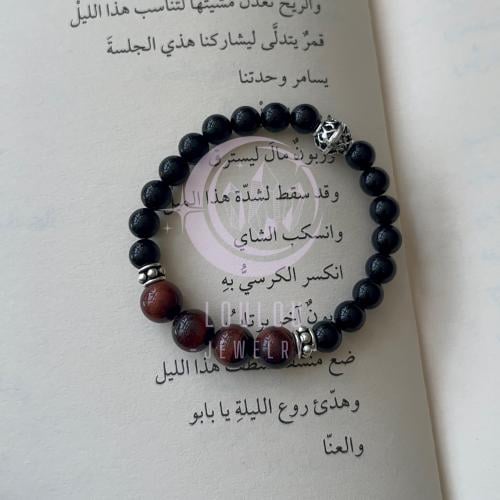 والريح تعدّل مشيتها لتناسب هذا الليلْ
قمرٌ يتدلَّى ليشاركنا هذي الجلسةَ
يسامر وحدتنا
وزبونٌ مالَ ليسترق
وقد سقط لشدّة هذا الميل
وانسكب الشاي
انكسر الكرسيُّ بهِ
آخر
LOULOU
JEWELRY
ضع هذا الليل
وهدّئ روع الليلةِ يا بابو
والعنّا